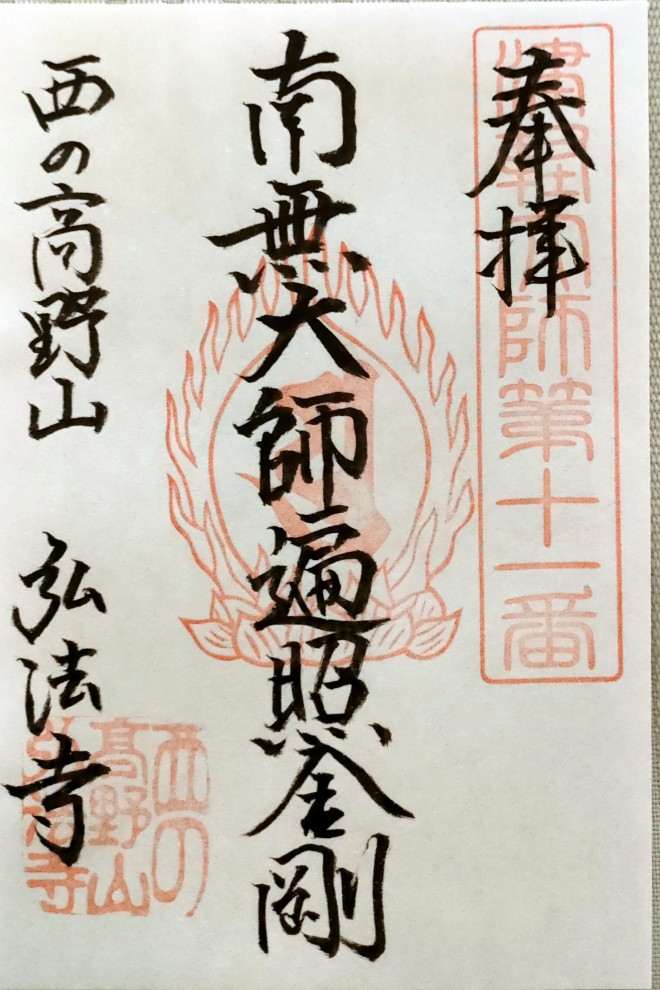 奉拝
津軽大師第十一番
南無大師遍照金剛
西の高野山 弘法寺
西の
高野山
弘法寺